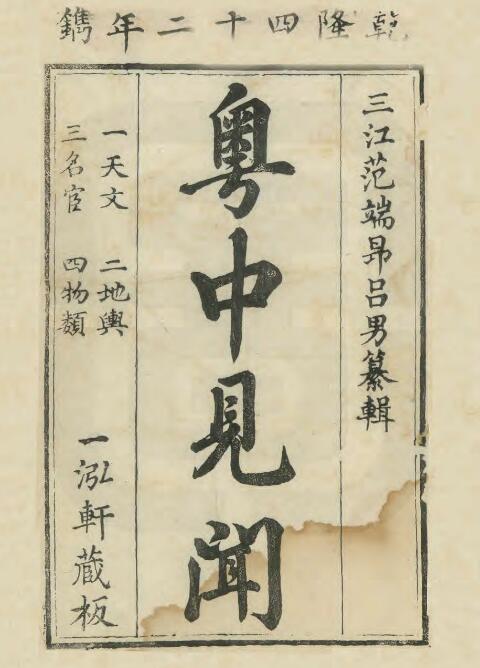 乾隆四十二年鐫
三江范端昂吕男纂輯
粵中見聞
一天文　二地輿
三名宦　四物類
一泓軒藏板